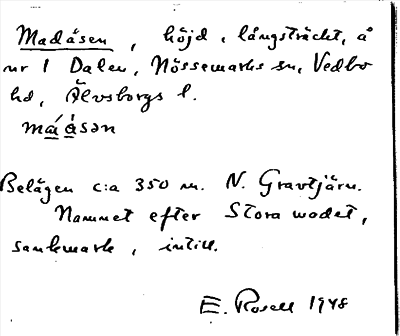 Madåsen, höjd, långsträckt, å
nr 1 Dalen, Nössemarks sn, Vedbo
hd, Älvsborgs l.
máa̍sən
Belägen c:a 350 m. N. Gravtjärn.
Namnet efter Stora modet,
sankmark, intill.
E. Rosell 1948